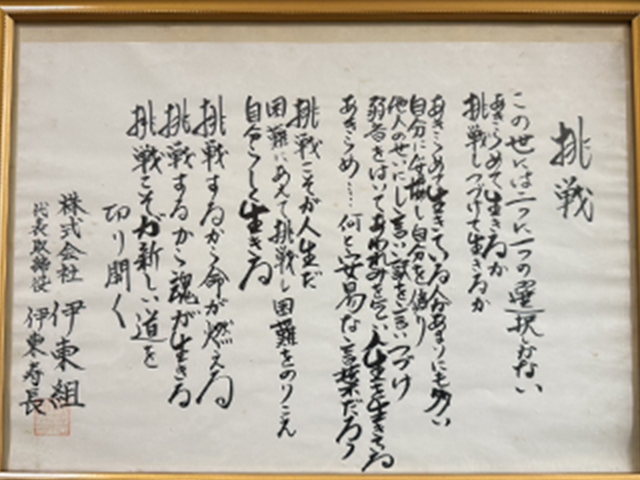 挑戦
この世には二つに一つの選択しかない
あきらめて生きるか
挑戦しつづけて生きるか
あきらめて生きている人があまりにも多い
自分に甘え自分を偽り
他人のせいにし言い訳を言いつづけ
弱音をはいてあわれみを乞い人生を生きてる
あきらめ……何と安易な言葉だろう
挑戦こそが人生だ
困難にあえて挑戦し困難をのりこえ
自分らしく生きる
挑戦するから命が燃える
挑戦するから魂が生きる
挑戦こそが新しい道を
切り開く
株式会社 伊東組
代表取締役 伊東寿長